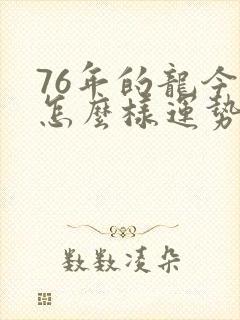 76年的龍今
怎麼樣運勢
數數凌朵